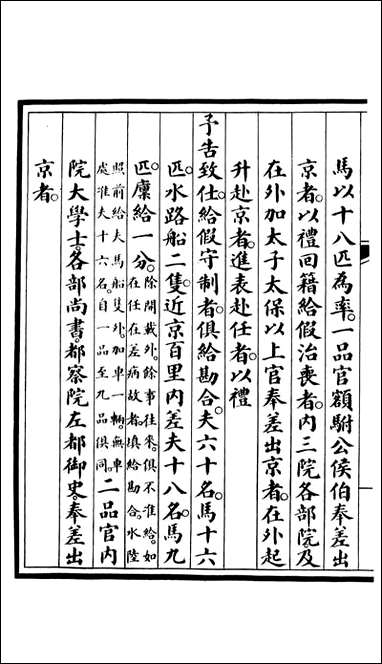 馬以十八匹為率。一品官額駙公侯伯奉差出
京者。以禮回籍給假治喪者。內三院各部院及
在外加太子太保以上官奉差出京者。在外起
升赴京者。進表赴任者。以禮
予告致仕。給假守制者。俱給勘合。夫六十名。馬十六
匹。水路船二隻。近京百里內差夫十八名。馬九
匹。廩給一分。除開載外。餘事往來。俱不准給。如
在任在差病故者。填給勘合。水陸
照前給夫馬船隻外。加車一輛。無車
處准夫十六名。自一品至九品俱同。二品官內
院大學士。各部尚書。都察院左都御史。奉差出
京者。